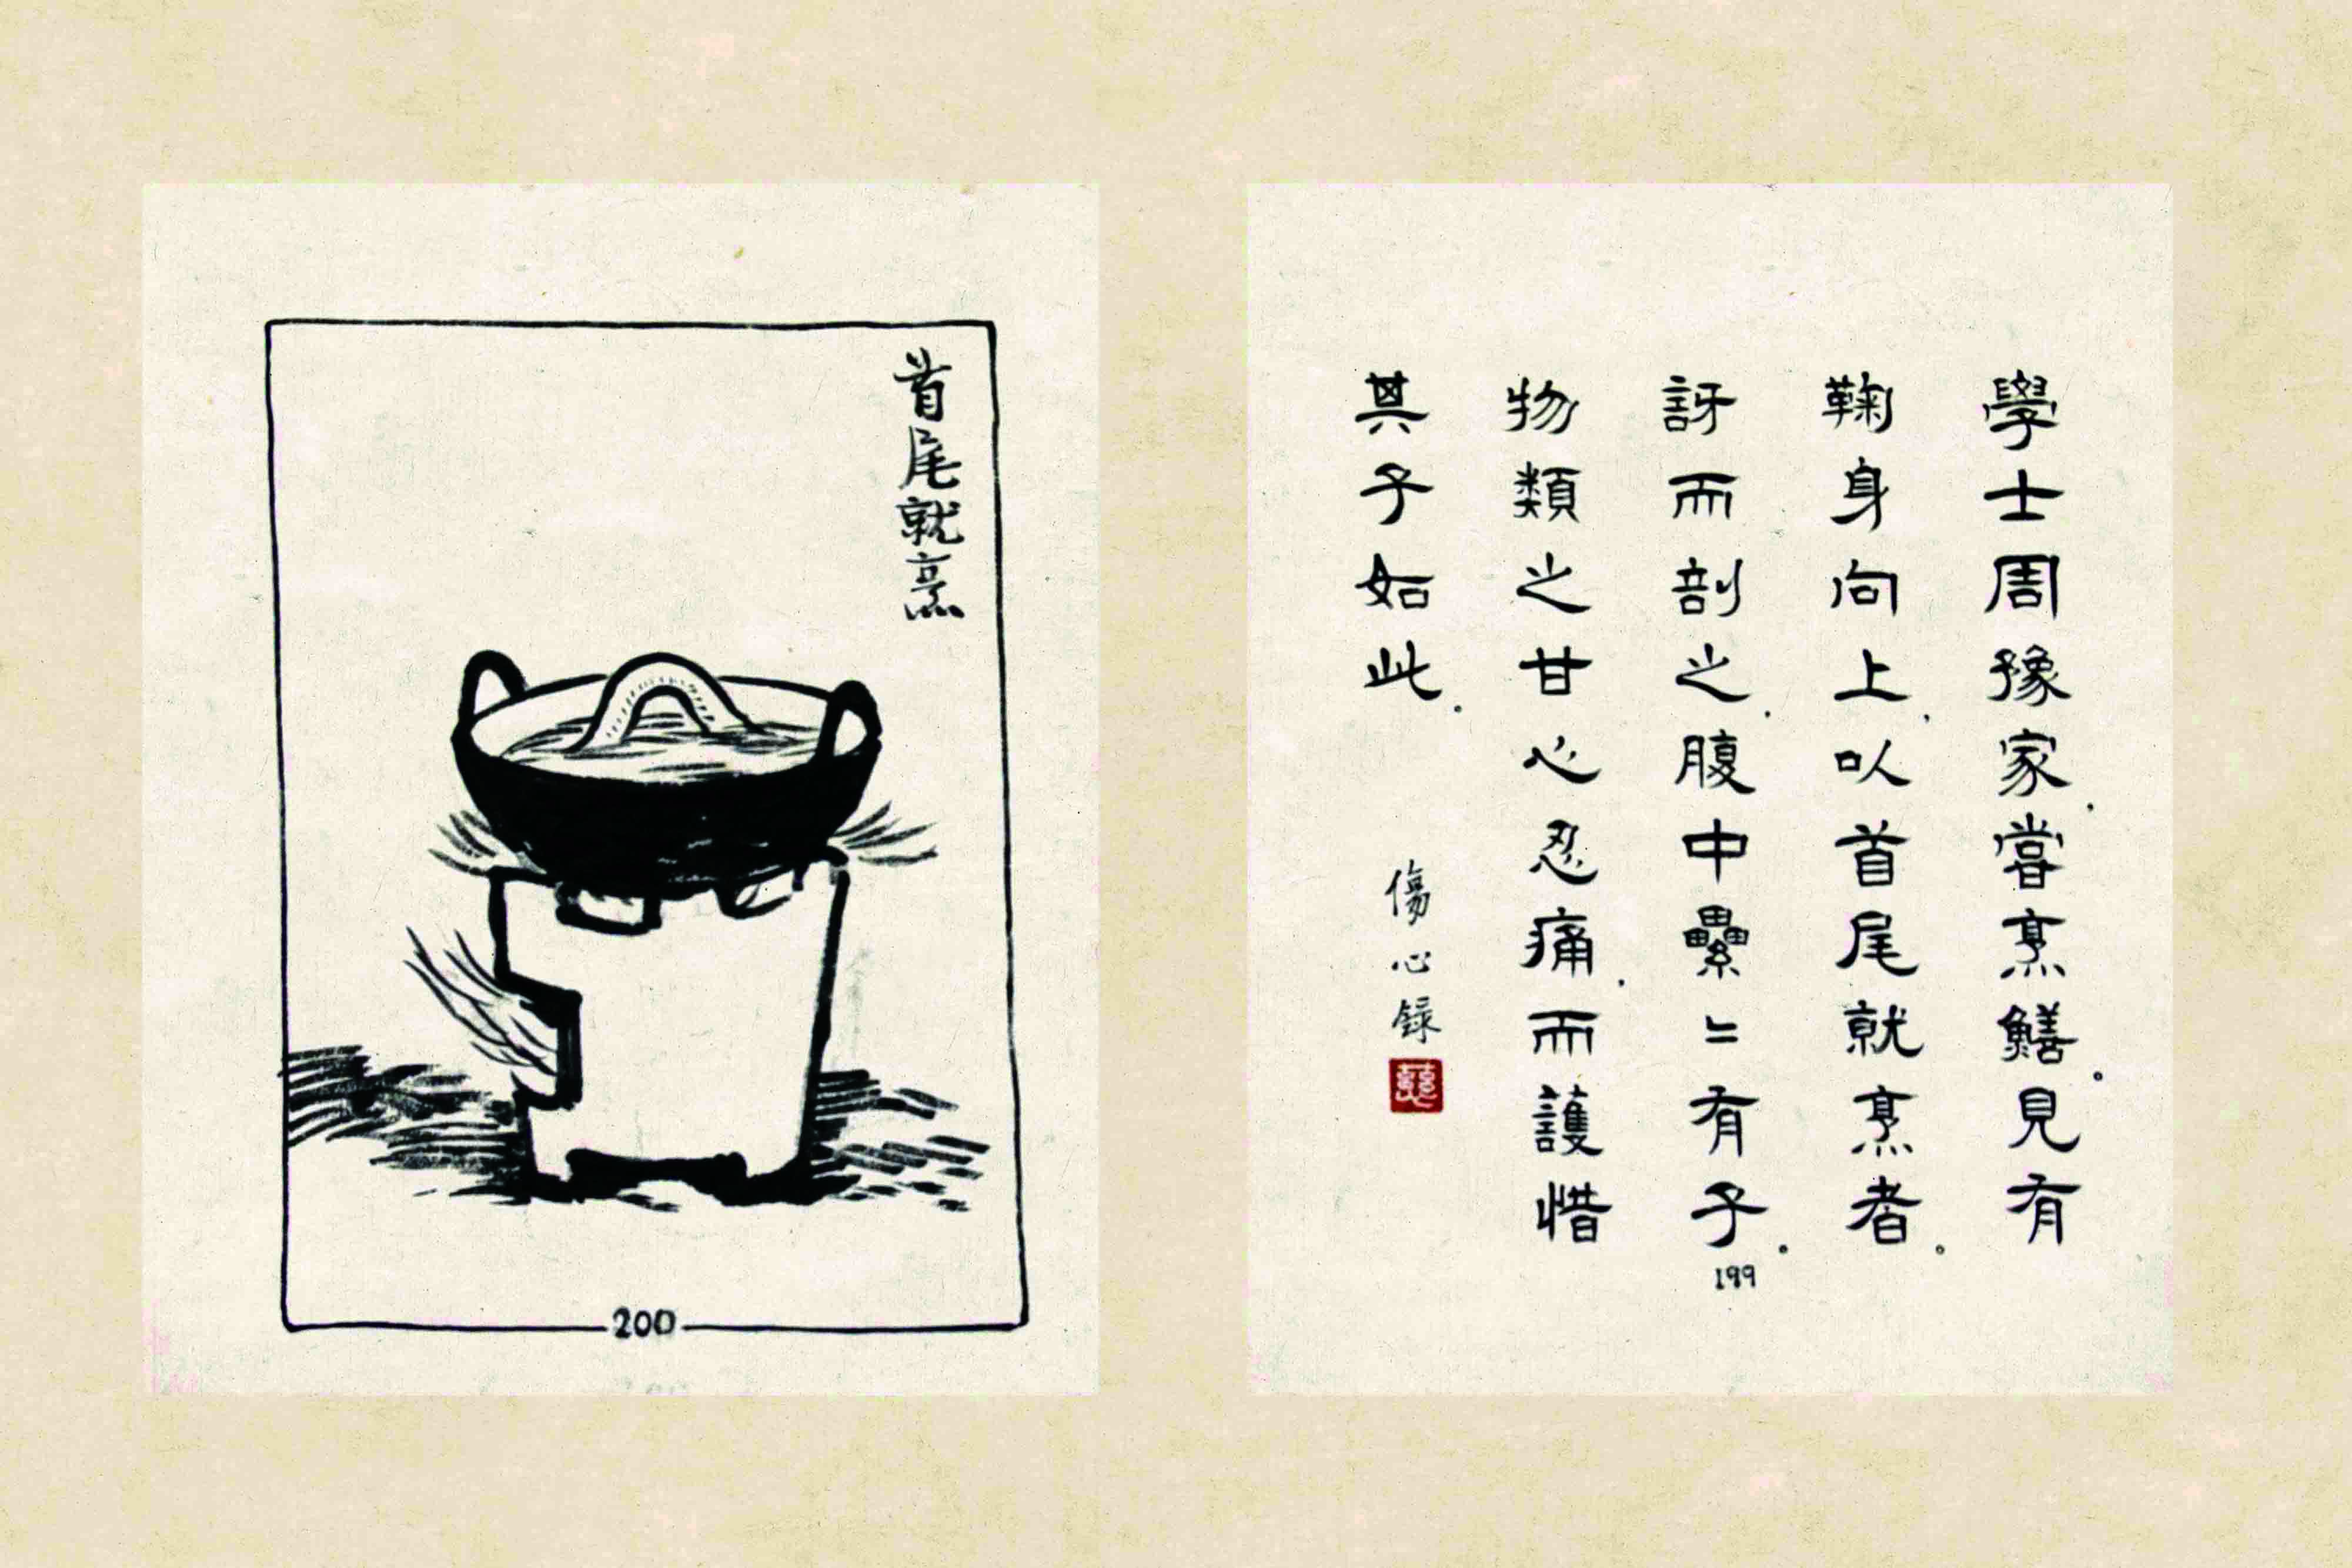 學士周豫家．嘗烹鱔。見有
鞠身向上．以首尾就烹者。
訝而剖之．腹中纍〻有子。
物類之甘心忍痛．而護惜
其子如此。
傷心録
199
首尾就烹
200